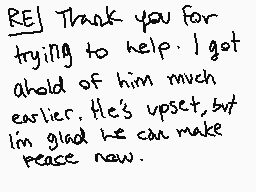 RE] Thank you for
trying to help. I got
ahold of him much
earlier. He's upset, but
I'm glad he can make
peace now.